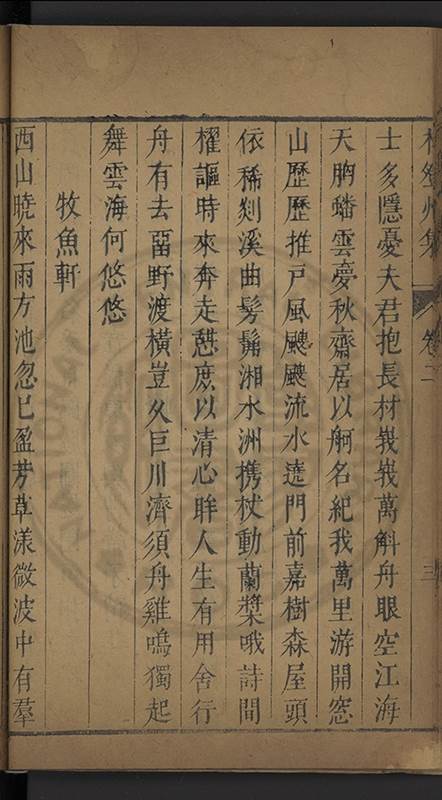 卷二
三
士多隱憂夫君抱長材峩峩萬斛舟眼空江海
天胸蟠雲夢秋齋居以舸名紀我萬里游開窓
山歷歷推戶風颼颼流水遶門前嘉樹森屋頭
依稀剡溪曲髣髴湘水洲携杖動蘭槳哦詩間
櫂謳時來奔走憇庶以清心眸人生有用舍行
舟有去畱野渡橫豈久巨川濟須舟雞鳴獨起
舞雲海何悠悠
牧魚軒
西山曉來雨方池忽已盈芳草漾微波中有羣